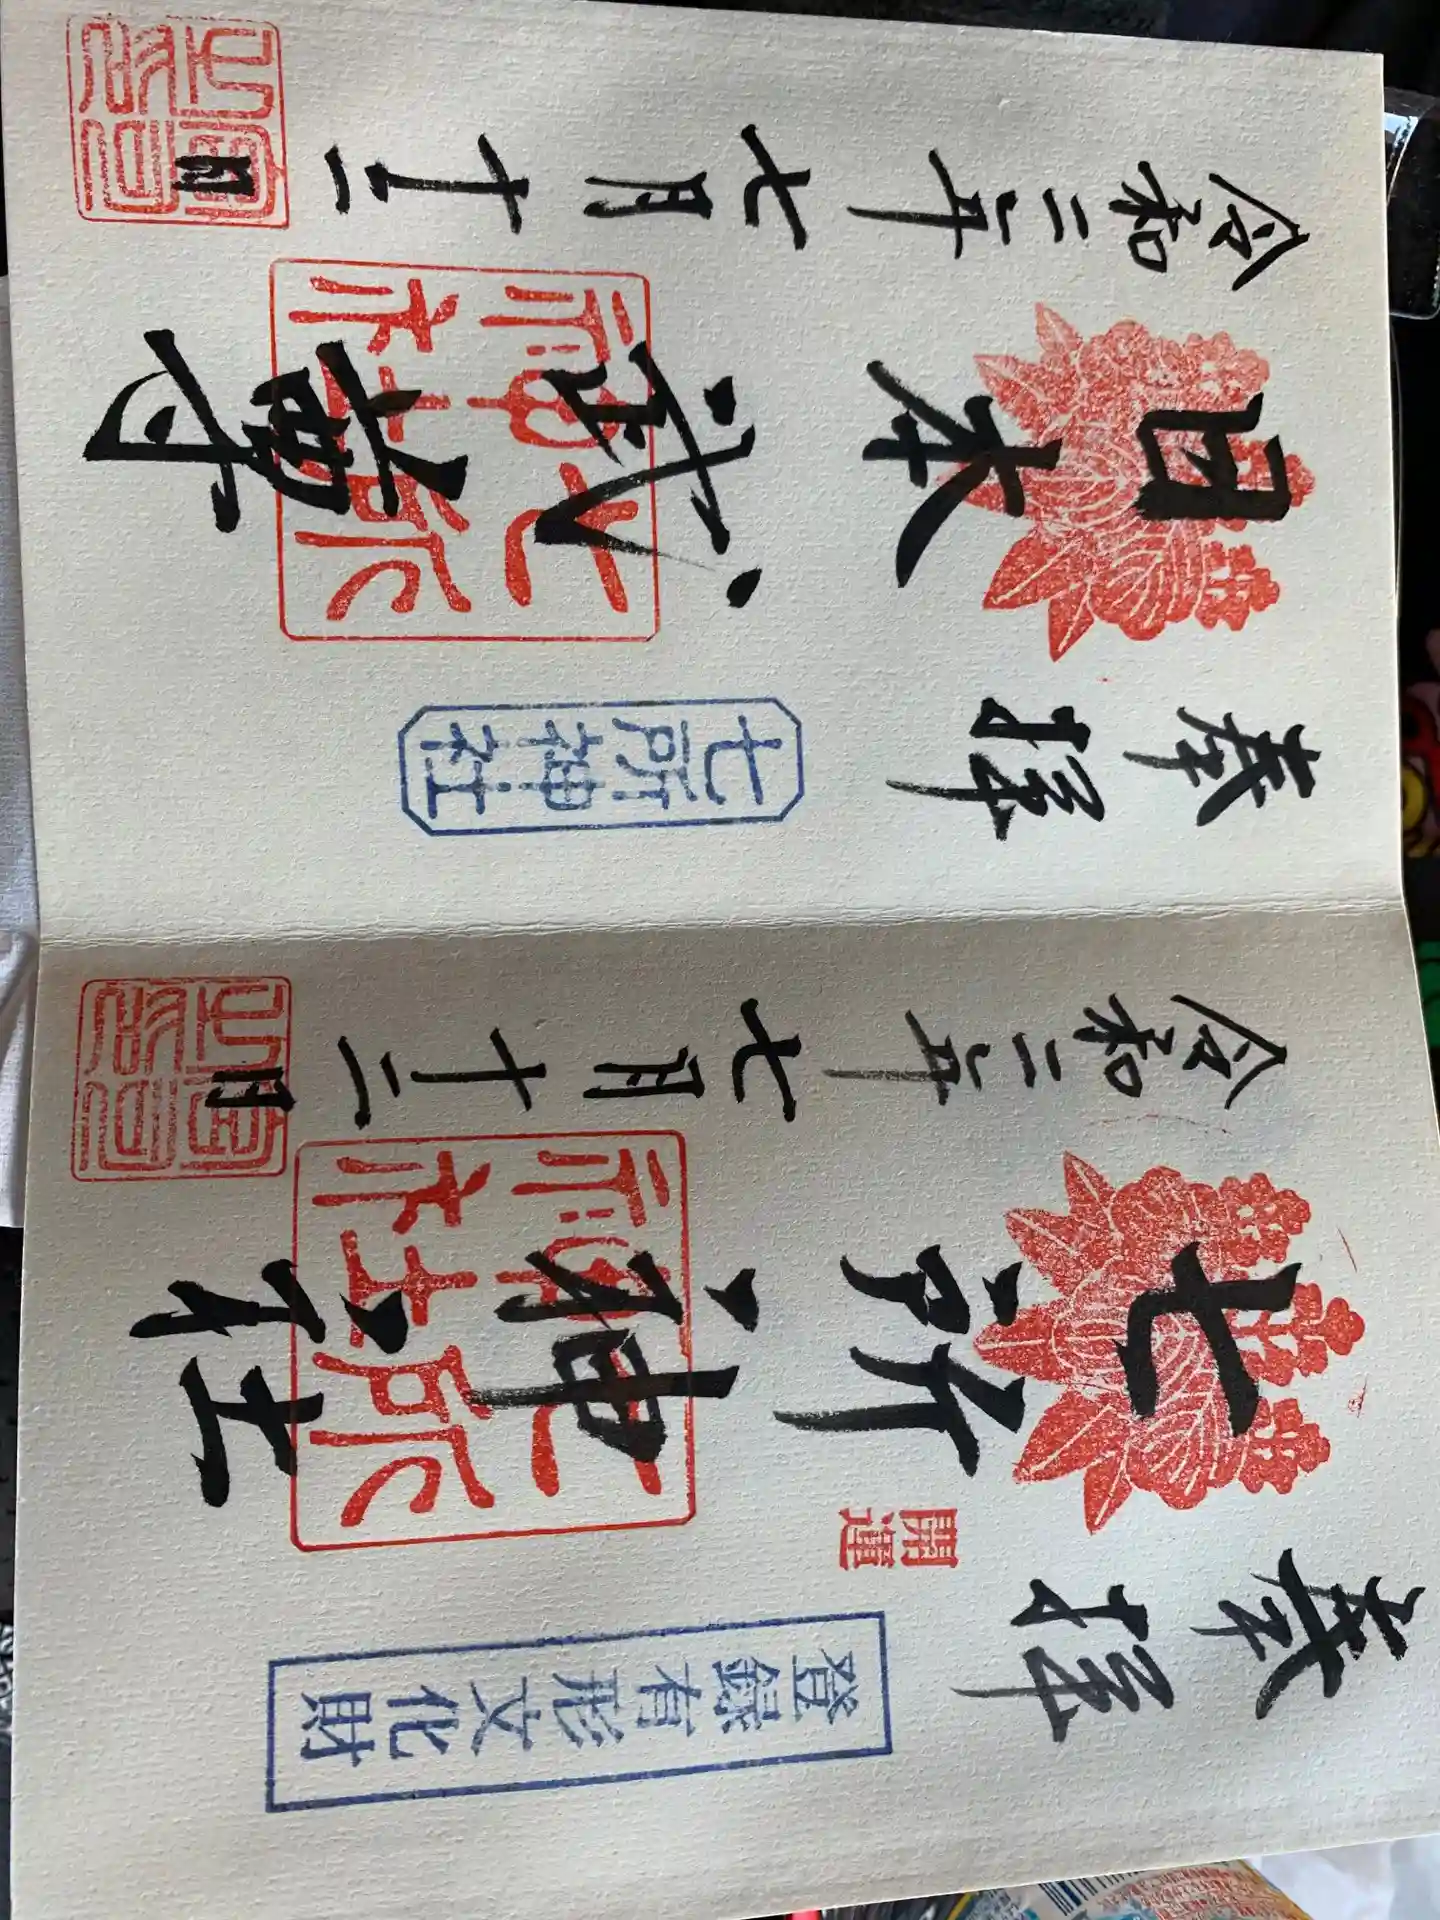 奉拝
登録有形文化財
開運
七所神社
七所神社
令和二年七月十二日
奉拝
七所神社
日本武尊
七所神社
令和二年七月十二日